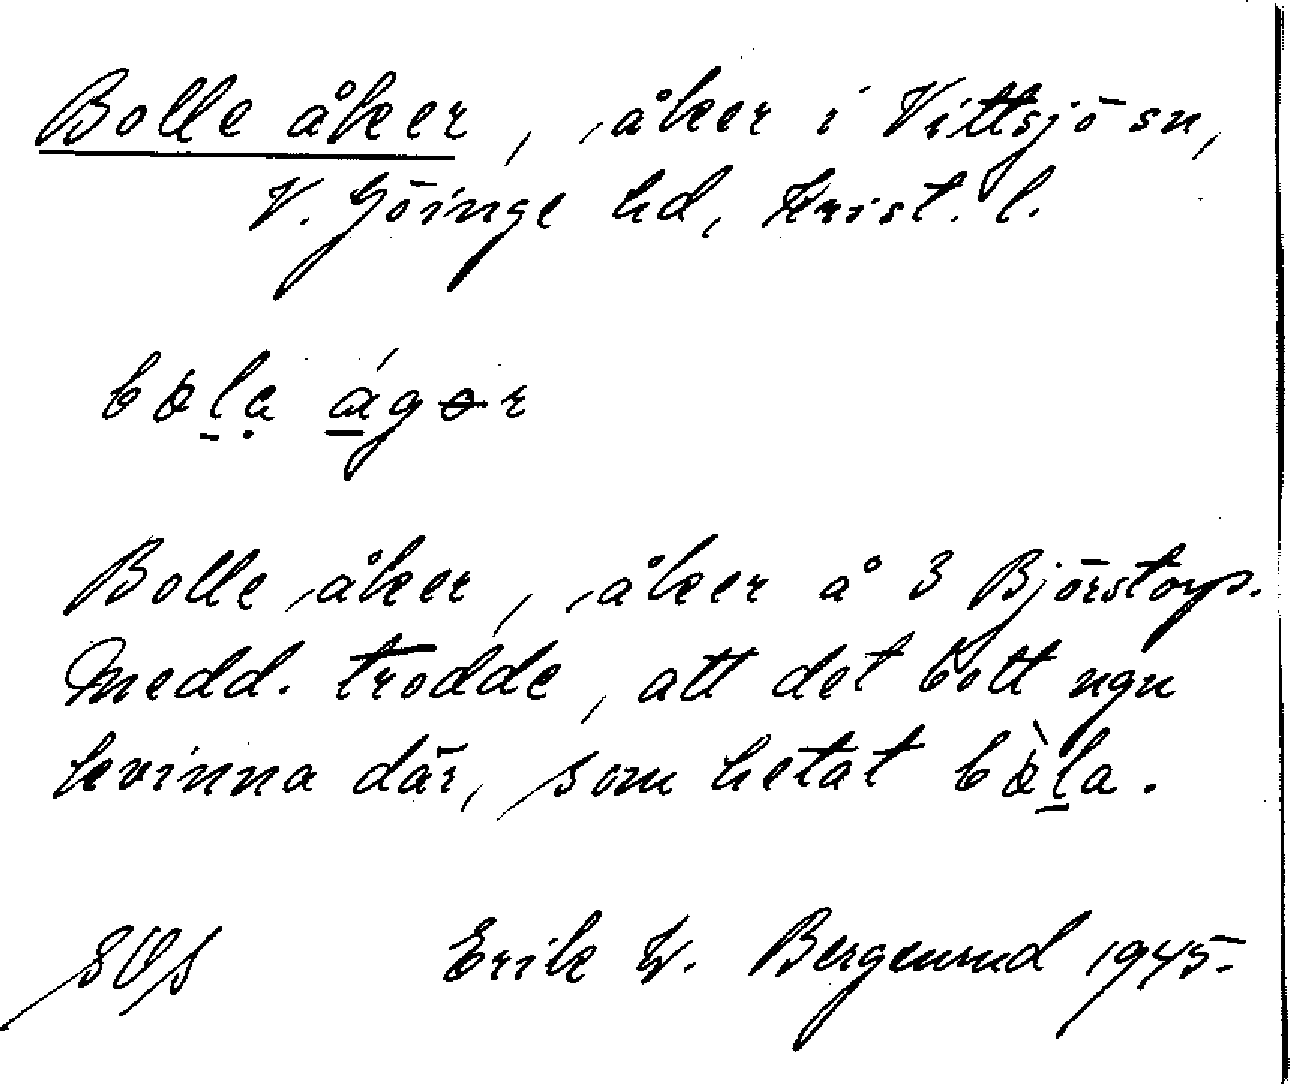 Bolle åker, åker i Vittsjö sn,
V. Göinge hd, Krist. l.
Bolle åker, åker å 3 Björstorp.
Medd. trodde, att det bott ngn
kvinna där, som hetat
Erik W. Bergenrud 1945.